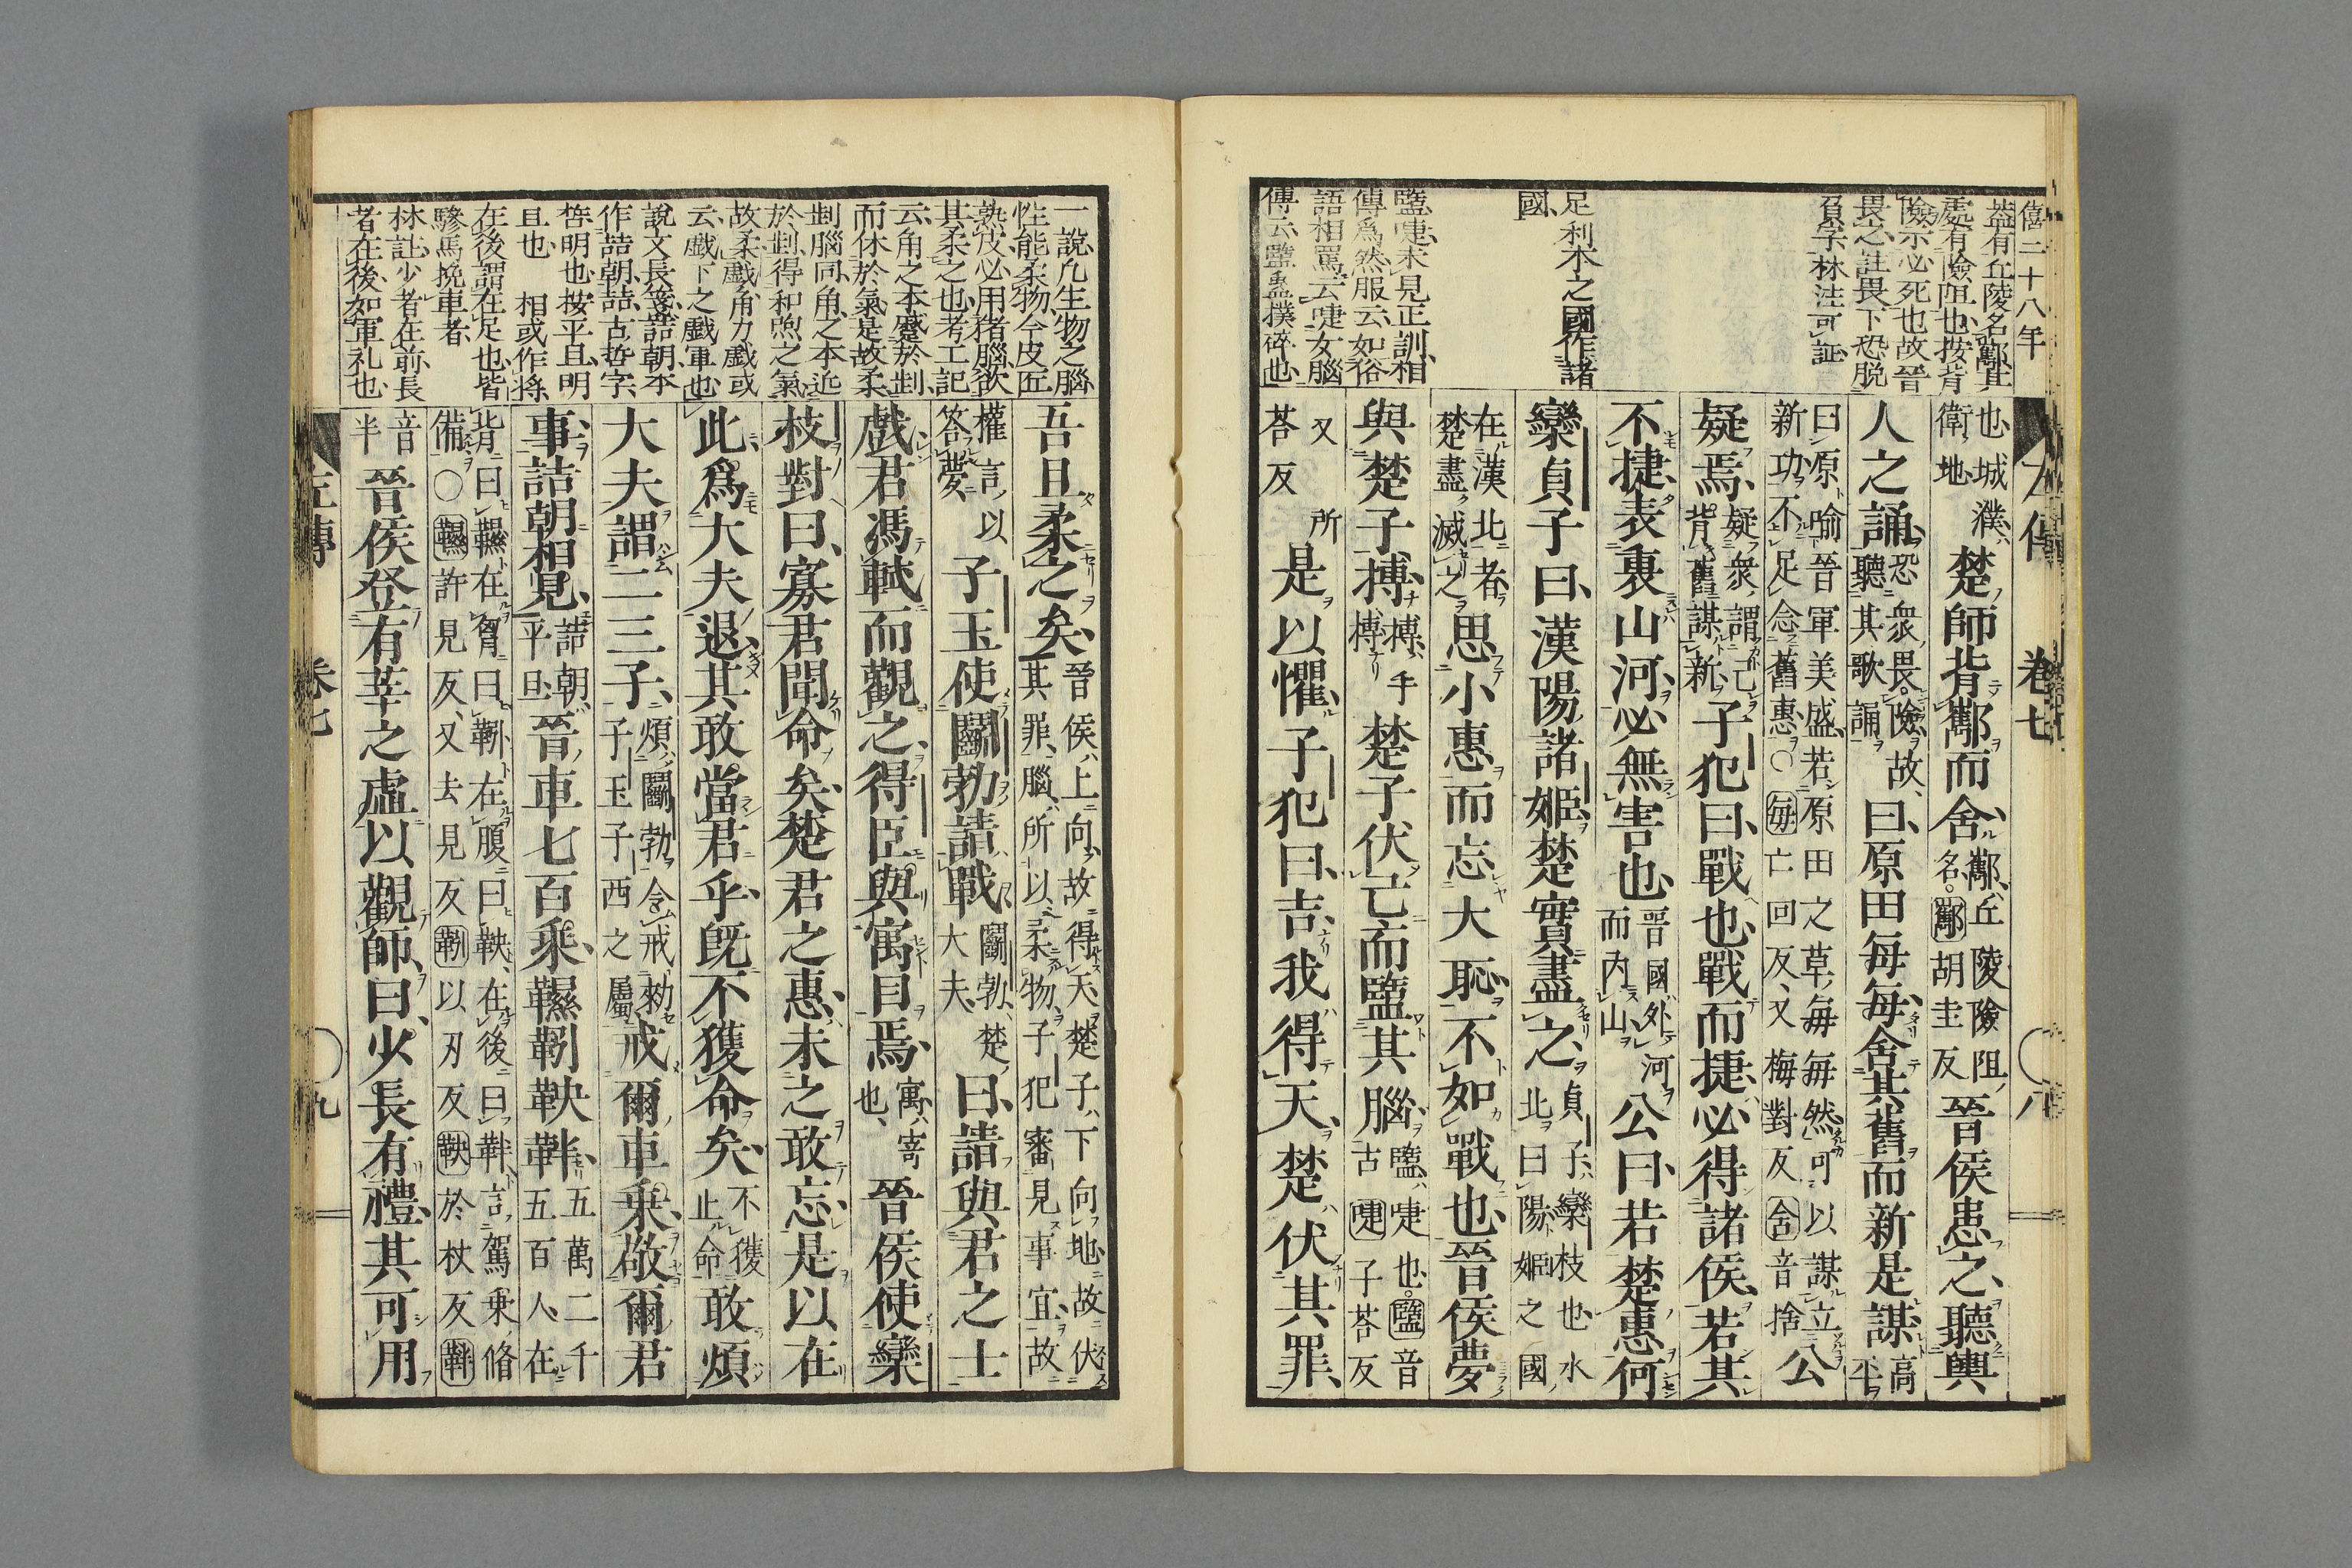 僖二十八年
蓋有丘陵名酅其
處有險阻也按背
險示必死也故晉
畏之註畏下恐脱
負字林注可証
足利本之國作諸
國
盬啑未見正訓相
傳爲然服云如俗
語相罵云啑女腦
傳云盬蠱撲碎也
左傳 卷七 八
也城濮衛地楚師背酅而舍酅丘陵險阻名酅胡圭反晉侯患之聽輿
人之誦恐衆畏險故聽其歌誦曰原田每每舍其舊而新是謀高平
曰原喻晉軍美盛若原田之草每每然可以謀立新功不足念舊惠○每亡回反又梅對反舍音捨公
疑焉疑衆謂己背舊謀新子犯曰戰也戰而捷必得諸侯若其
不捷表裏山河必無害也晉國外河而内山公曰若楚惠何
欒貞子曰漢陽諸姬楚實盡之貞子欒枝也水北曰陽姬之國
在漢北者楚盡滅之思小惠而忘大恥不如戰也晉侯夢
與楚子搏搏手搏楚子伏己而盬其腦盬啑也盬音古啑子荅反
又所荅反是以懼子犯曰吉我得天楚伏其罪
一說凡生物之腦
性能柔物今皮匠
熟皮必用猪腦欲
其柔之也考工記
云角之本蹙於㓻
而休於氣是故柔
㓻腦同角之本近
於㓻得和煦之氣
故柔戲角力戲或
云戲下之戲軍也
說文長箋詰朝本
作喆朝喆古哲字
哲明也按平旦明
旦也 相或作將
在後謂在足也皆
驂馬挽車者
林註少者在前長
者在後如軍礼也
吾且柔之矣晉侯上向故得天楚子下向地故伏其罪腦所以柔物子犯審見事宜故
權言以荅夢子玉使鬭勃請戰鬭勃楚大夫曰請與君之士
戲君馮軾而觀之得臣與寓目焉寓寄也晉侯使欒
枝對曰寡君聞命矣楚君之惠未之敢忘是以在
此爲大夫退其敢當君乎既不獲命矣不獲止命敢煩
大夫謂二三子煩鬭勃令戒勑子玉子西之屬戒爾車乘敬爾君
事詰朝相見詰朝平旦晉車七百乘韅靷鞅靽五萬二千五百人在
背曰韅在胷曰靷在腹曰鞅在後曰靽言駕乘脩備○韅許見反又去見反靷以刃反鞅於杖反靽
音半晉侯登有莘之虛以觀師曰少長有禮其可用
左傳 卷七 九